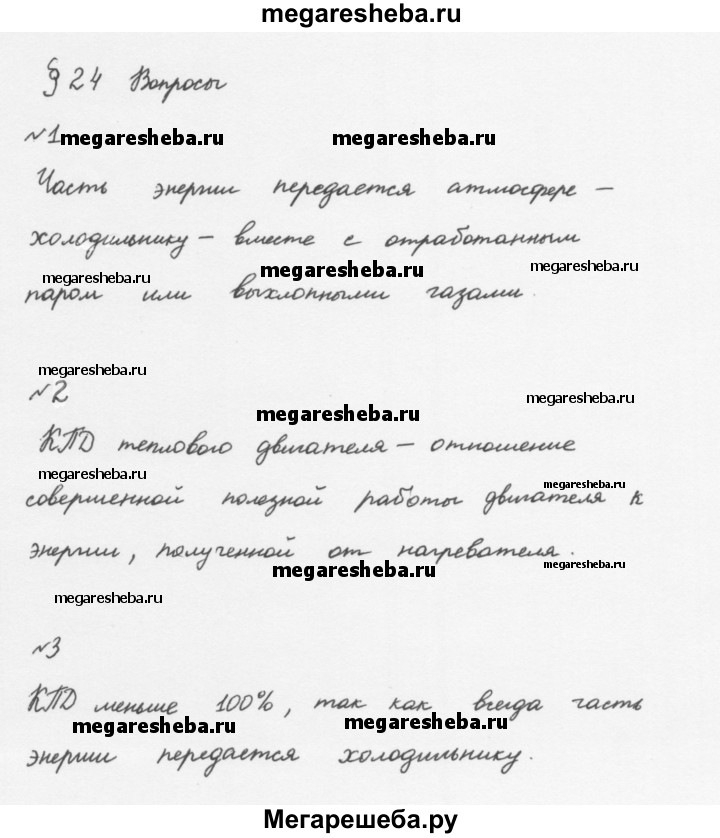 megaresheba.ru
§ 24 Вопросы
№1 megaresheba.ru megaresheba.ru
Часть энергии передается атмосфере –
холодильнику – вместе с отработанным
megaresheba.ru megaresheba.ru megaresheba.ru
паром или выхлопными газами.
megaresheba.ru
№2 megaresheba.ru
megaresheba.ru
КПД теплового двигателя – отношение
megaresheba.ru megaresheba.ru
совершенной полезной работы двигателя к
энергии, полученной от нагревателя.
megaresheba.ru megaresheba.ru
megaresheba.ru
№3
КПД меньше 100%, так как всегда часть
megaresheba.ru megaresheba.ru
энергии передается холодильнику.
Мегарешеба.ру